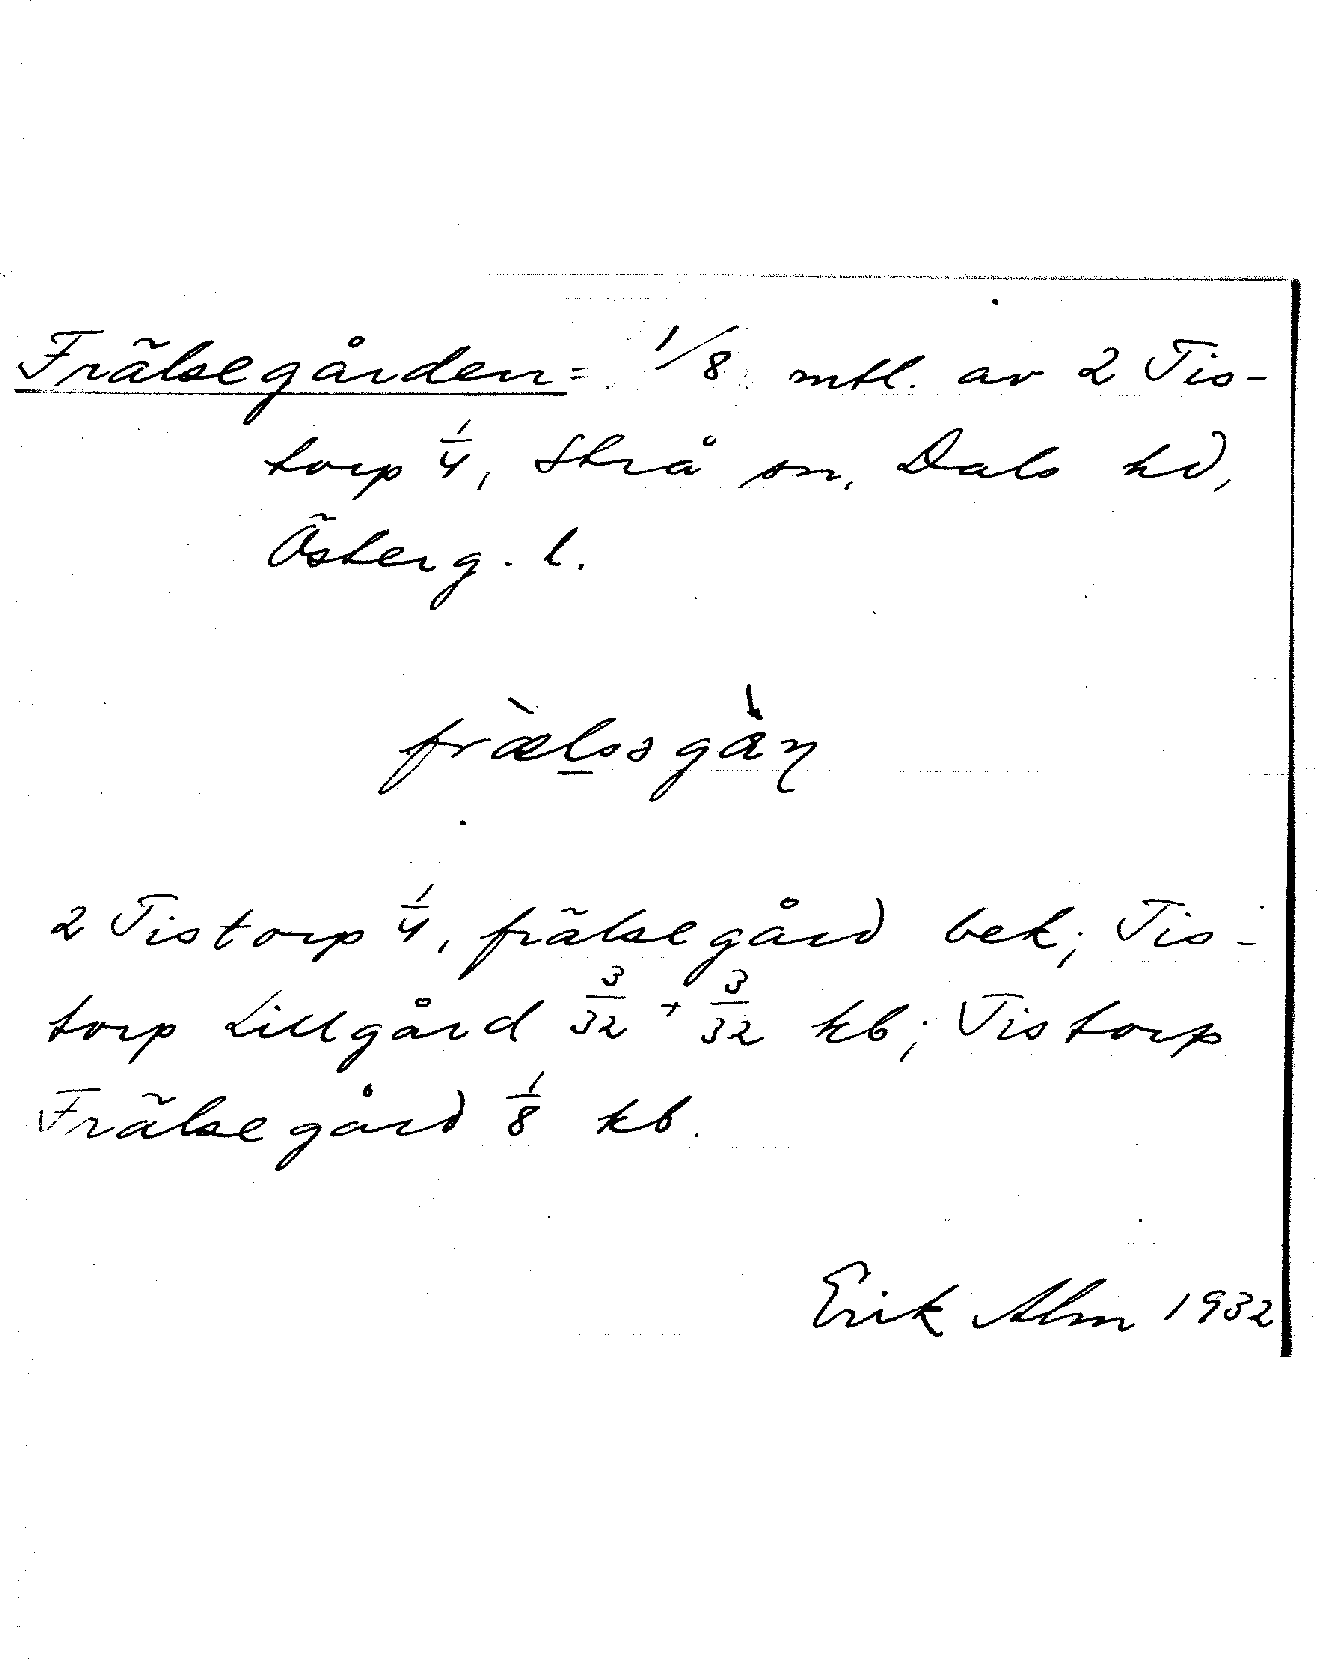 Frälsegården = 1/8 mtl. av 2 Tis-
torp 1/4, Strå sn, Dals hd,
Österg. l.
fræ̀lsəgå̀ɳ
2 Tistorp 1/4, frälsegård bek; Tis-
torp Lillgård 3/32 + 3/32 kb; Tistorp
Frälsegård 1/8 kb.
Erik Alm 1932